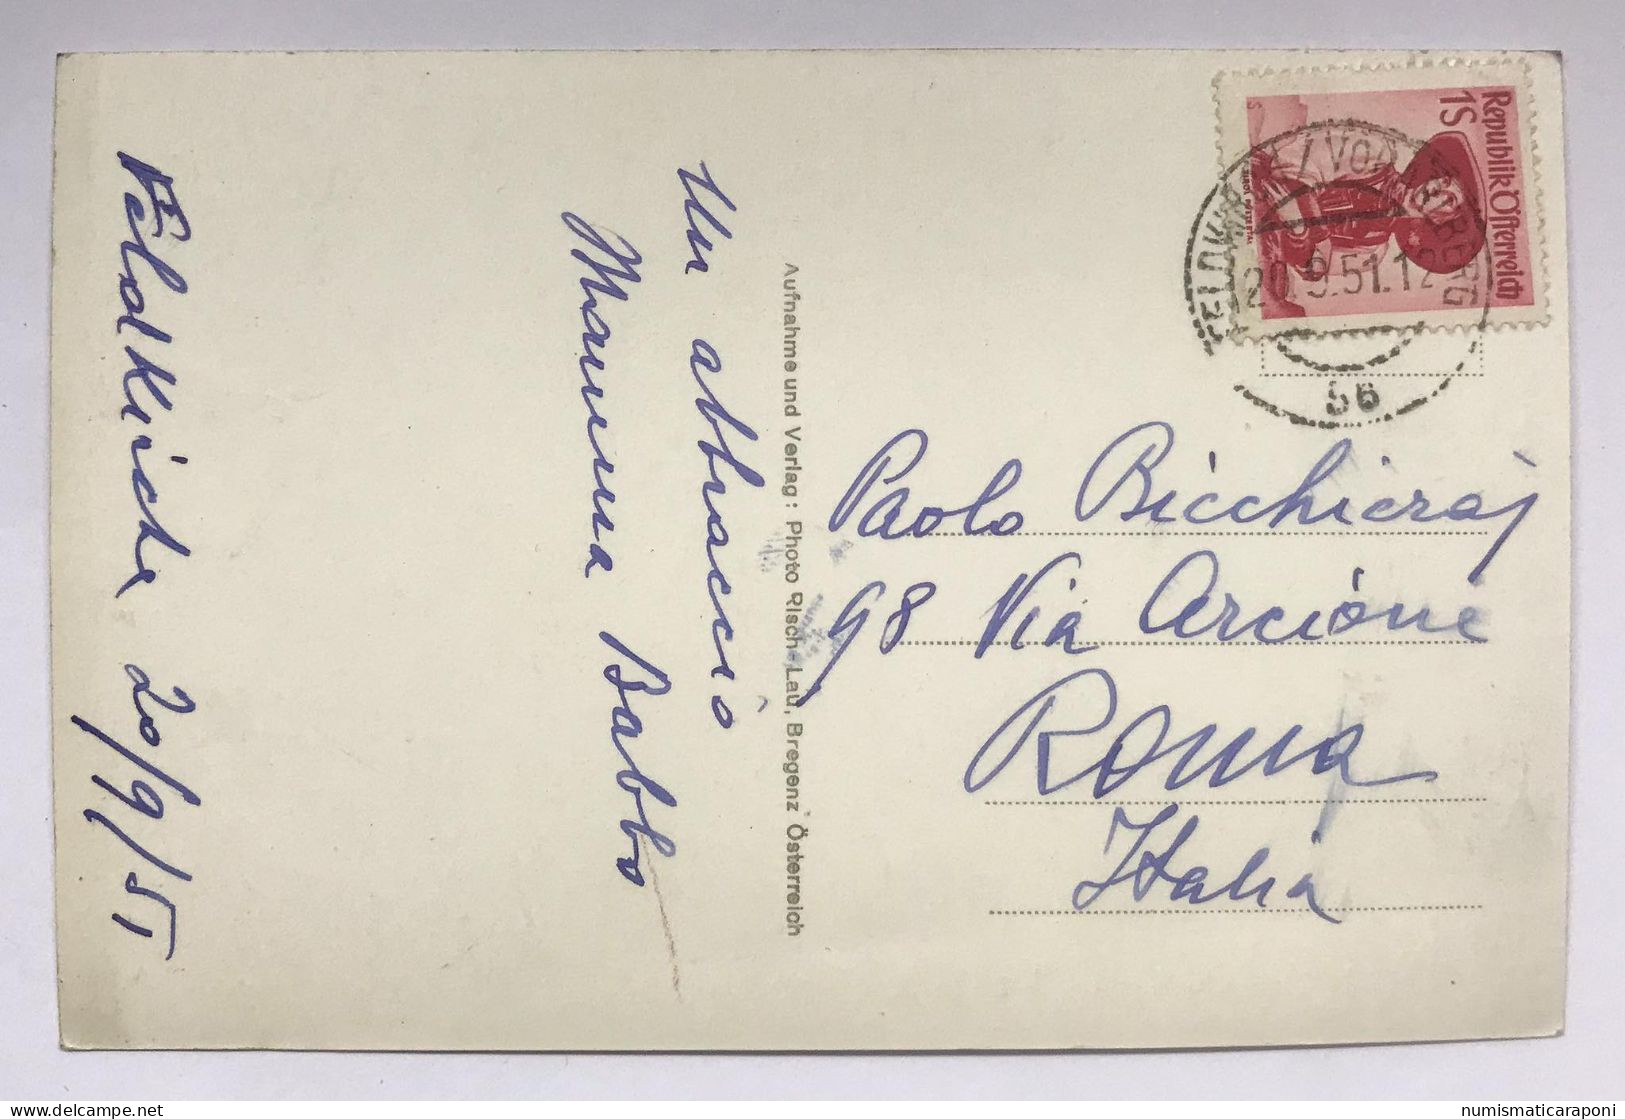 Feldkirche 20/9/51
Un abbraccio
Mamma Babbo
Aufnahme und Verlag: Photo Risch-Lau, Bregenz Österreich
Republik Österreich
1S
FELDKIRCH 1 / VORARLBERG
20.9.51.12
5b
Paolo Bicchieraj
98 Via Arcione
Roma
Italia
numismaticaraponi